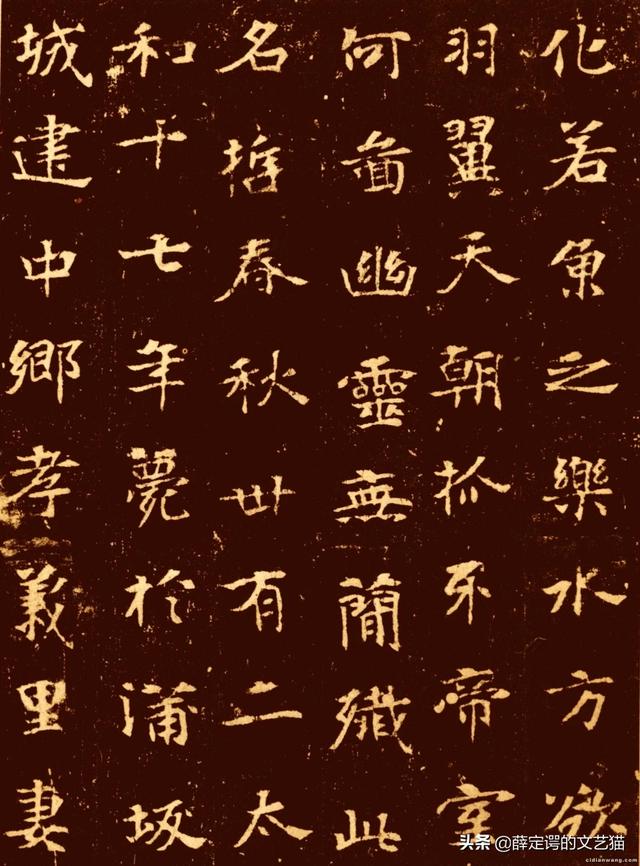 化若魚之樂水方欲
羽翼天朝抓牙帝室
何啚幽靈無簡殲此
名哲春秋卅有二太
和十七年薨於蒲坂
城建中鄉孝義里妻
头条 @薛定谔的文艺猫
cidianwang.com